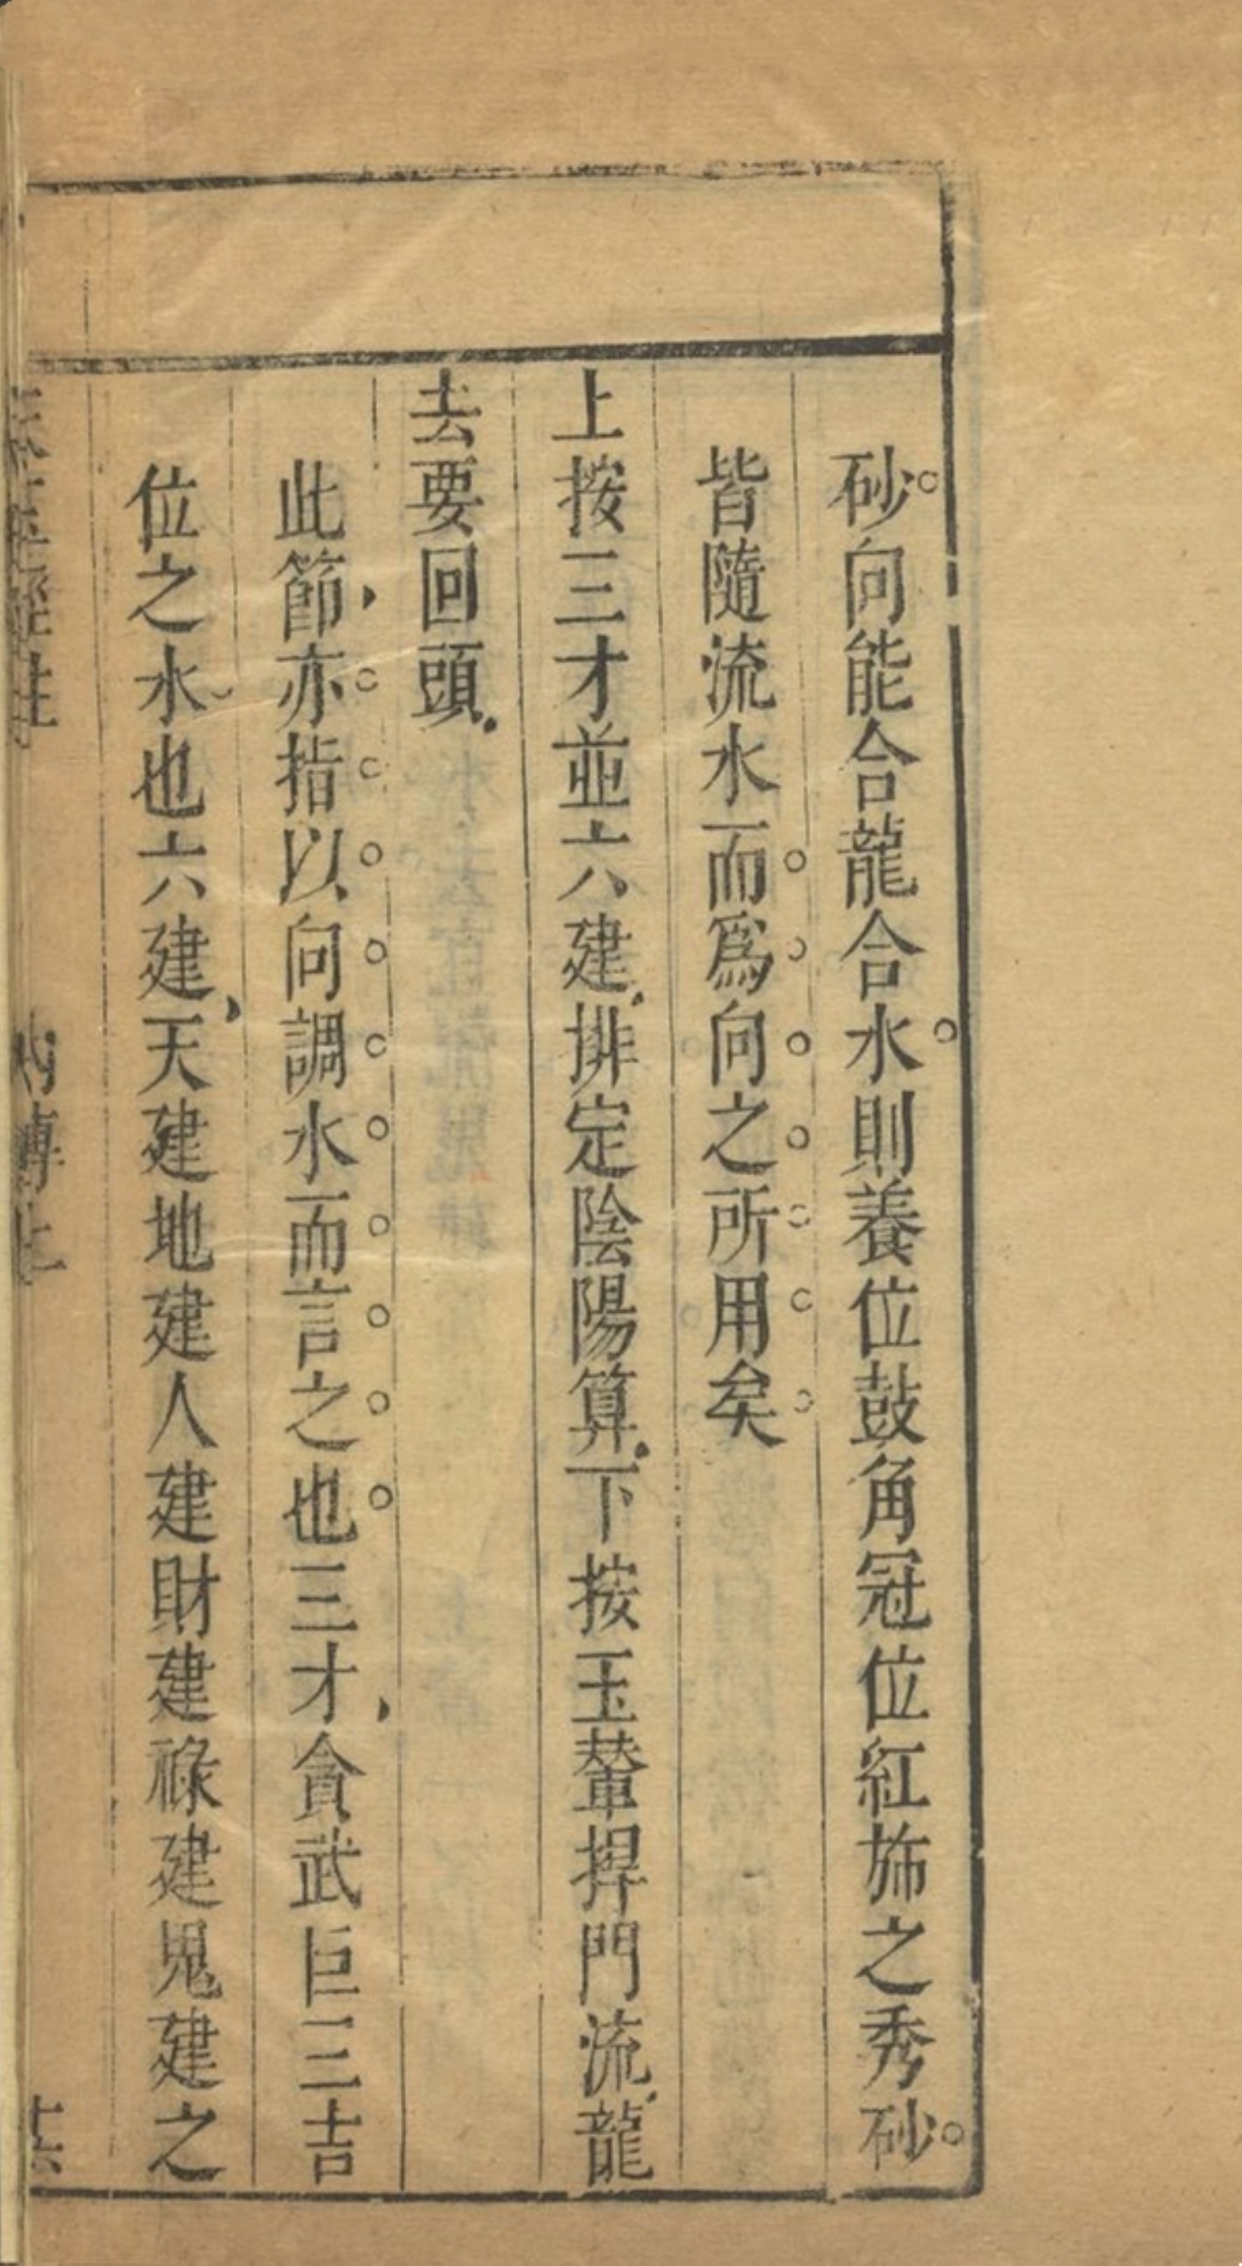 砂向能合龍合水則養位鼓角冠位紅斾之秀砂
皆隨流水而爲向之所用矣
上按三才並六建排定陰陽算下按玉輦捍門流龍
去要回頭
此節亦指以向調水而言之也三才貪武巨三吉
位之水也六建天建地建人建財建祿建鬼建之